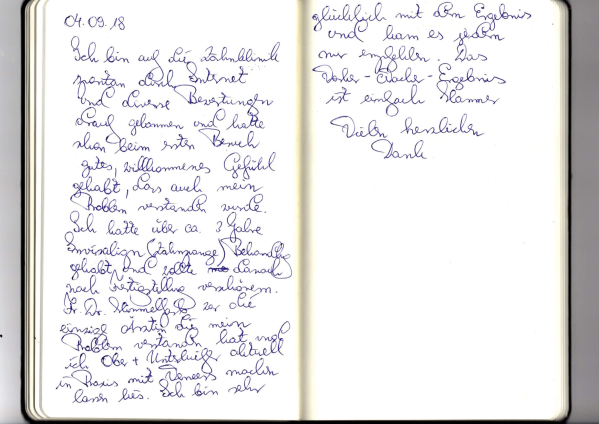 04.09.18
Ich bin auf die Zahnklinik
spontan durch Internet
und diverse Bewertungen
drauf gekommen und hatte
schon beim ersten Besuch
gutes, willkommenes Gefühl
gehabt, dass auch mein
Problem verstanden wurde.
Ich hatte über ca. 3 Jahre
Invisalign (Zahnspange) Behandlung
gehabt und wollte danach
nach Fertigstellung verschönern.
Fr. Dr. war die
einzige Ärztin die mein
Problem verstanden hat und
ich Ober + Unterkiefer aktuell
in Praxis mit Veneers machen
lassen lies. Ich bin sehr
glücklich mit dem Ergebnis
und kann es jedem
nur empfehlen. Das
Vorher - Nacher - Ergebnis
ist einfach Hammer
Vielen herzlichen
Dank